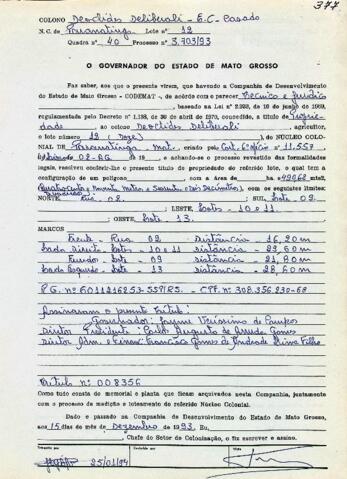 377
COLONO Deoclides Deliberali - E.C. Casado
N. C. de Paranatinga Lote nº 12
Quadra nº 40 Processo nº 3.703/93
O GOVERNADOR DO ESTADO DE MATO GROSSO
Faz saber, aos que o presente virem, que havendo a Companhia de Desenvolvimento
do Estado de Mato Grosso - CODEMAT -, de acôrdo com o parecer Técnico e Jurídico
, baseado na Lei nº 2.923, de 10 de junho de 1969,
regulamentada pelo Decreto nº 1.138, de 30 de abril de 1970, concedido, a título de Propriedade
ao colono Deoclides Deliberali, agricultor,
o lote número 12 (Doze), do NÚCLEO COLONIAL
DE Paranatinga - Mt. criado pelo 6º ofício nº 11.557
de 19 , e achando-se o processo revestido das formalidades
legais, resolveu conferir-lhe o presente título de propriedade do referido lote, o qual tem a
configuração de um polígono com a área de
com os seguintes limites:
NORTE Rua 02. SUL Lote 09.
LESTE, Lotes - 10 e 11.
OESTE, Lote 13.
MARCOS
Frente - Rua 02 distância - 16,20 m
Lado Direito Lotes 10 e 11 distância - 23,60 m
Fundos - Lote 09 distância - 21,80 m
Lado Esquerdo - Lote - 13 distância - 28,60 m
RG. nº 6011216253-SSP/RS. - CPF. nº 308.356.230-68
Assinaram o presente título:
Governador: Jayme Veríssimo de Campos
Diretor Presidente: Carlos Augusto de Arruda Gomes
Diretor Adm. e Financ. Francisco Gomes de Andrade Lima Filho
Título nº 008356
Como tudo consta do memorial e planta que ficam arquivados nesta Companhia, juntamente
com o processo da medição e loteamento do referido Núcleo Colonial.
Dado e passado na Companhia de Desenvolvimento do Estado de Mato Grosso,
aos 15 dias do mês de Dezembro de 1993. Eu,
, Chefe do Setor de Colonização, o fiz escrever e assino.
25/01/94
Visto